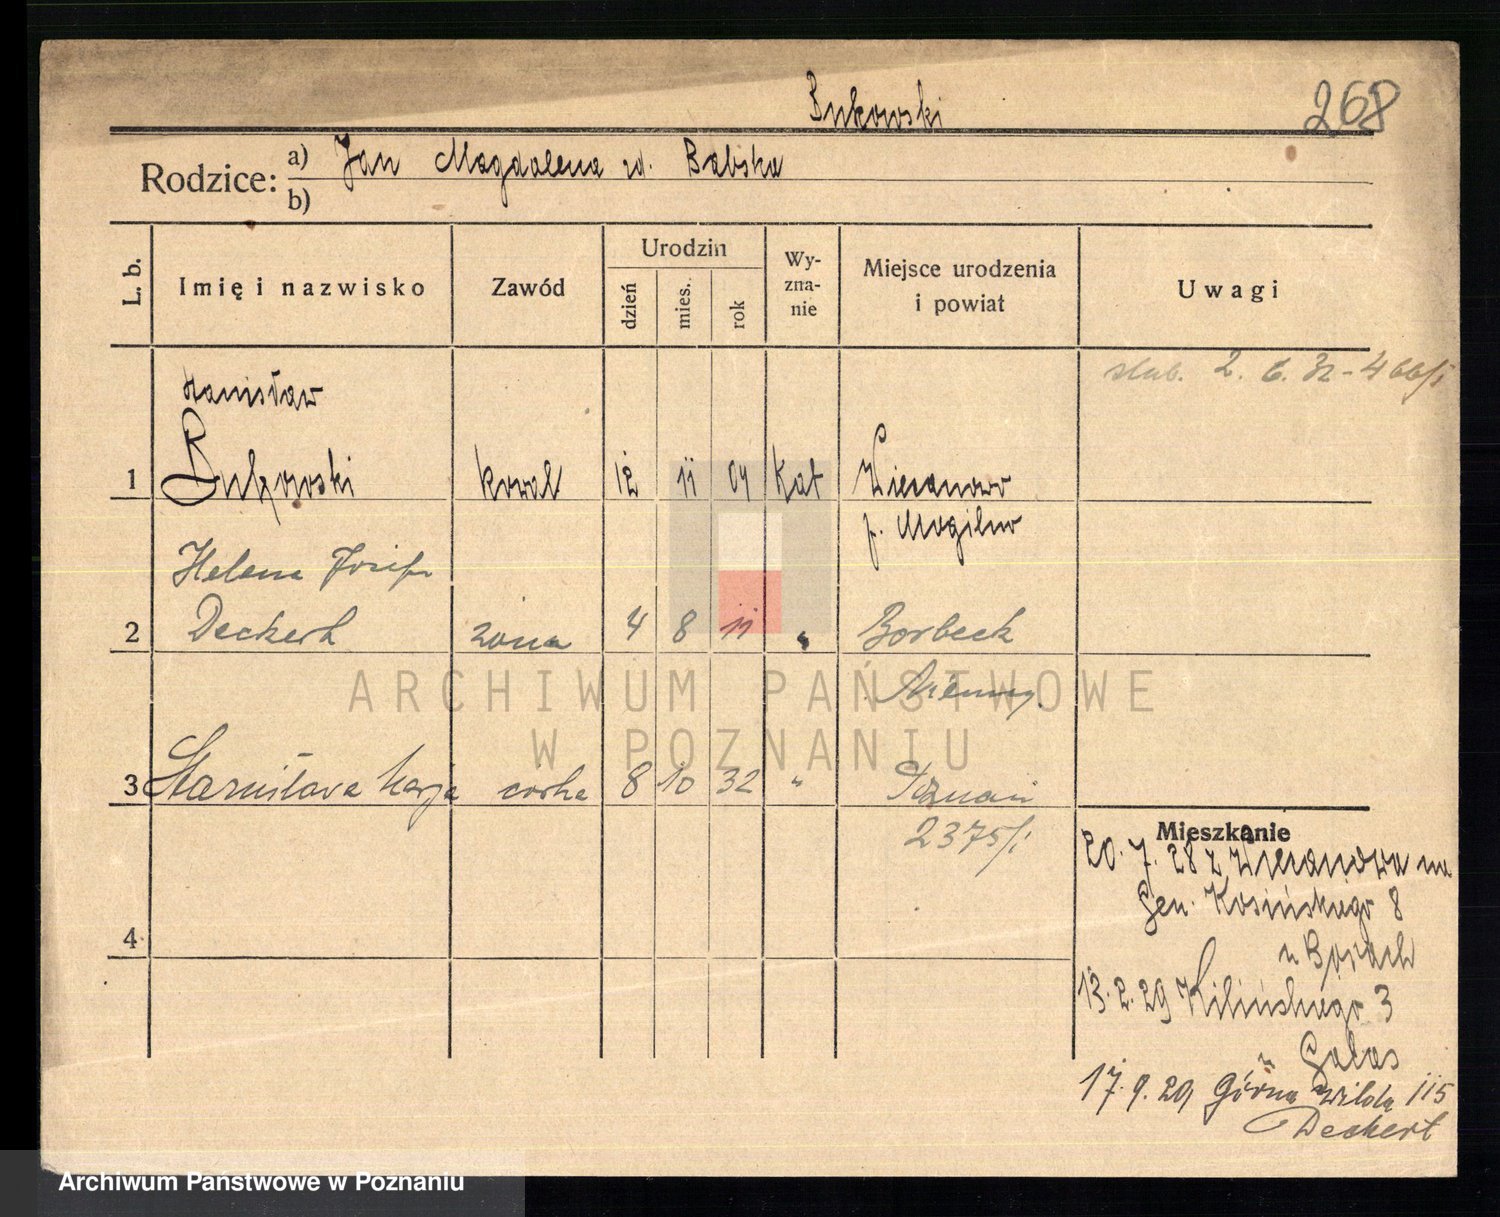 Bukowski
268
Rodzice: a) Jan Magdalena zd. Babska
b)
L. b.
Imię i nazwisko
Zawód
Urodzin
dzień
mies.
rok
Wy-
zna-
nie
Miejsce urodzenia
i powiat
Uwagi
ślub. 2. 6. 32 - 466/I
Stanisław
1 Bukowski kowal 12 11 04 Kat Wiecanowo
p. Mogilno
Helena Józefa
2 Deckert żona 4 8 11 " Borbeck
Niemcy.
3 Stanisława Marja córka 8 10 32 " Poznań
2375/I
4
Mieszkanie
20. 7. 28 z Wiecanowa na
Gen. Kosińskiego 8
u
13. 2. 29 Kilińskiego 3
u Galas
17. 9. 29 Górna Wilda 115
Deckert
ARCHIWUM PAŃSTWOWE
W POZNANIU
Archiwum Państwowe w Poznaniu